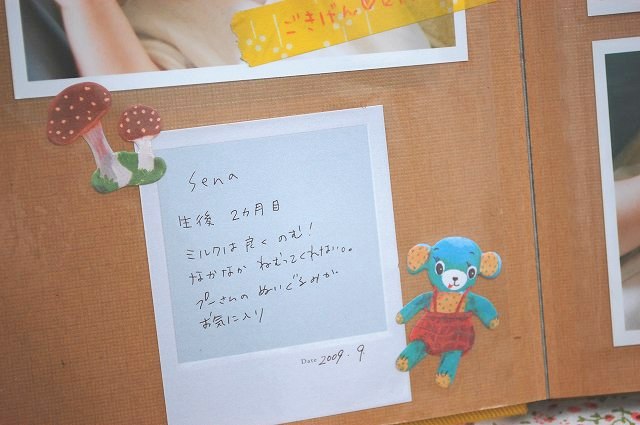 ごきげん♡
Sena
生後 2カ月目
ミルクは良くのむ!
なかなか ねむってくれない。。
プーさんの ぬいぐるみが
お気に入り
Date 2009.9.